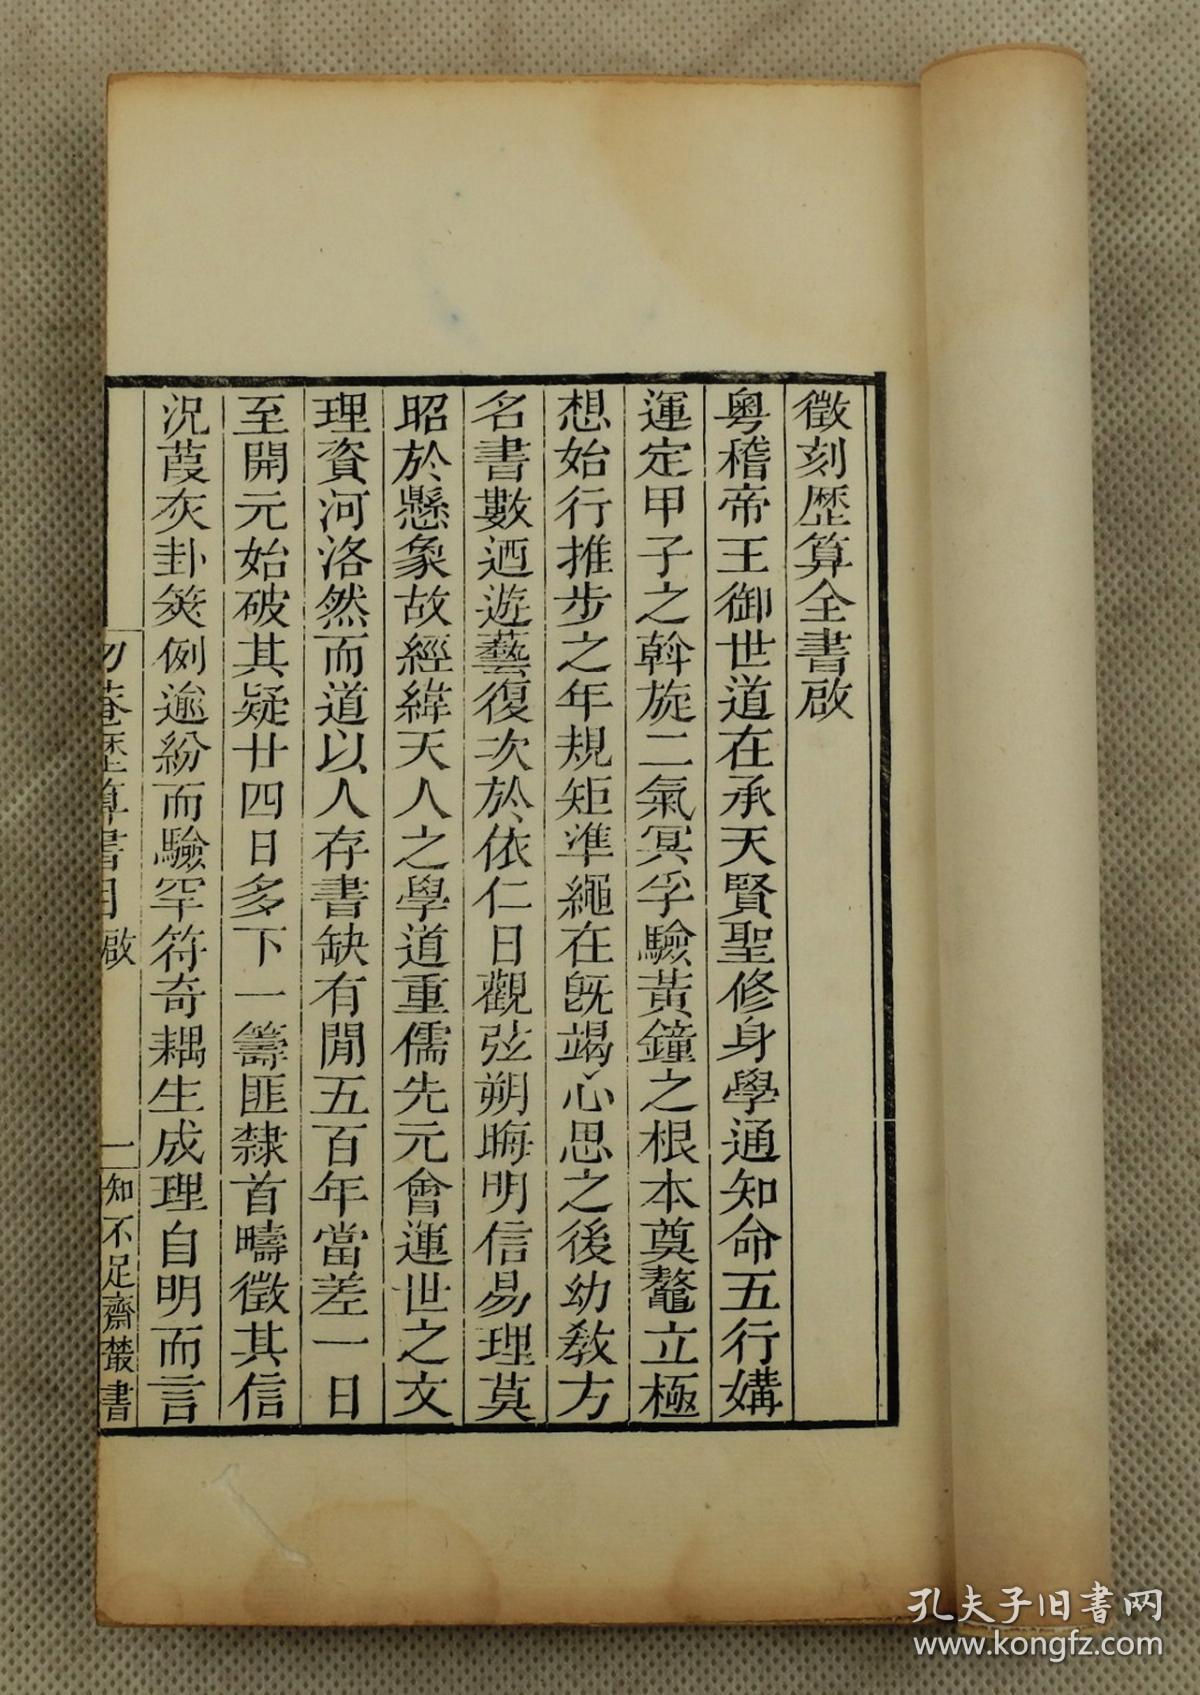 徵刻歴算全書啟
粵稽帝王御世道在承天賢聖修身學通知命五行媾
運定甲子之斡旋二氣冥孚驗黃鐘之根本奠鼇立極
想始行推步之年規矩準繩在旣竭心思之後幼敎方
名書數迺遊藝復次於依仁日觀弦朔晦明信易理莫
昭於懸象故經緯天人之學道重儒先元會運世之文
理資河洛然而道以人存書缺有閒五百年當差一日
至開元始破其疑廿四日多下一籌匪隸首疇徵其信
況葭灰卦筴例逾紛而驗罕符奇耦生成理自明而言
勿菴歴算書目 啟
一
知不足齋叢書
孔夫子旧書网
www.kongfz.com